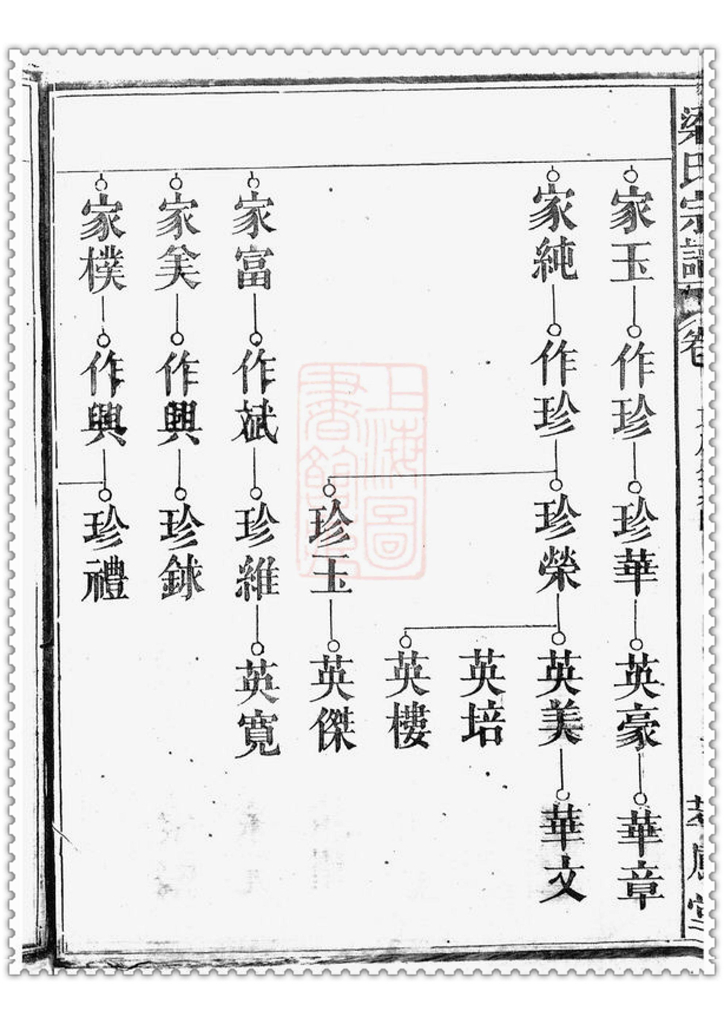 梁氏宗譜 卷
家玉 作珍 珍華 英豪 華章
家純 作珍 珍榮 英美 華文
英培
英樓
珍玉 英傑
家富 作斌 珍維 英寬
家美 作興 珍銶
家樸 作興 珍禮
上海圖
書館藏